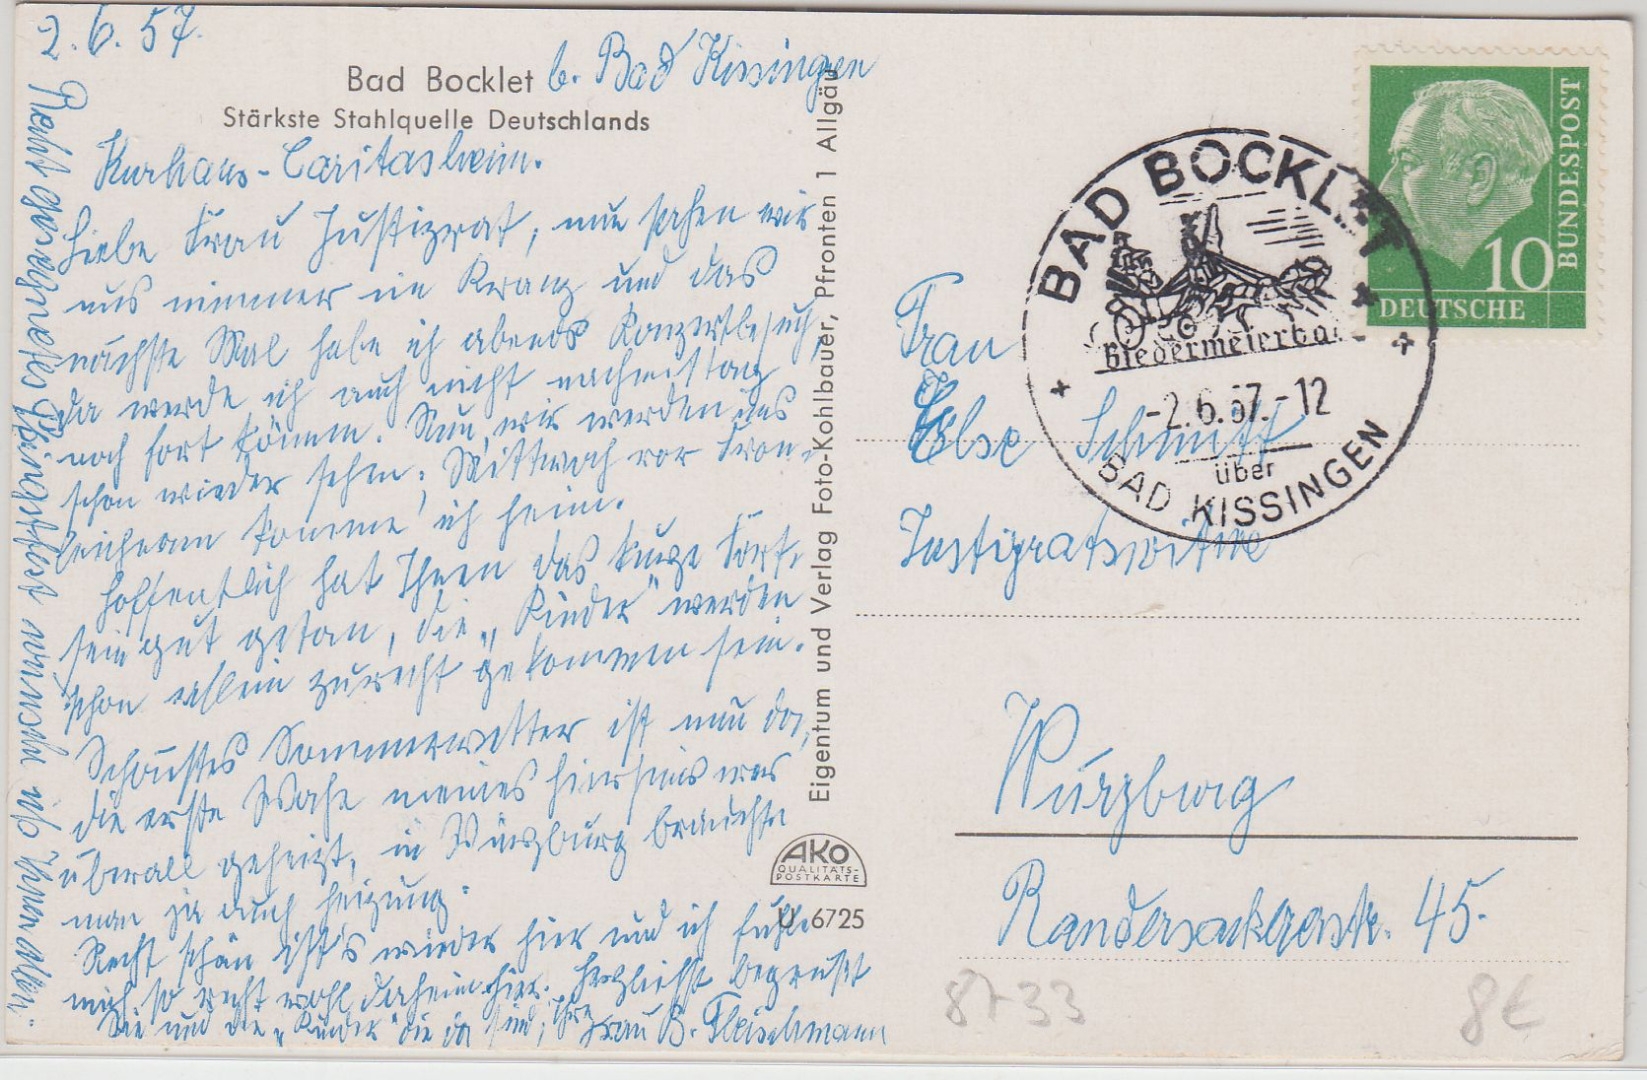 2.6.57.
Bad Bocklet b. Bad Kissingen
Stärkste Stahlquelle Deutschlands
Kurhaus-Caritasheim.
Liebe Frau Justizrat, nun sahen wir
uns nimmer im Kranz und das
nächste Mal habe ich abends Konzertbesuch,
da werde ich auch nicht nachmittag
noch fort können. Nun, wir werden uns
schon wieder sehen; Mittwoch vor Fron-
leichnam komme ich heim.
Hoffentlich hat Ihnen das kurze Fort-
sein gut getan, die „Kinder" werden
schon allein zurecht gekommen sein.
Schönstes Sommerwetter ist nun da,
die erste Woche meines Hierseins war
überall geheizt, in Würzburg brauchte
man ja auch Heizung.
Recht schön ist's wieder hier und ich fühle
mich so recht wohl daheim hier. Herzlichst begrüßt
Sie und die „Kinder" die da sind, Ihre Frau B. Fleischmann
Recht gesegnetes Pfingstfest wünsche ich Ihnen allen.
Eigentum und Verlag Foto-Kohlbauer, Pfronten 1 Allgäu
AKO
QUALITÄTS-
POSTKARTE
U 6725
BAD BOCKLET
Biedermeierbad
-2.6.57.-12
über
BAD KISSINGEN
10
DEUTSCHE
BUNDESPOST
Frau
Else Schmitt
Justizratswitwe
Würzburg
Randersackererstr. 45.
8733
8€